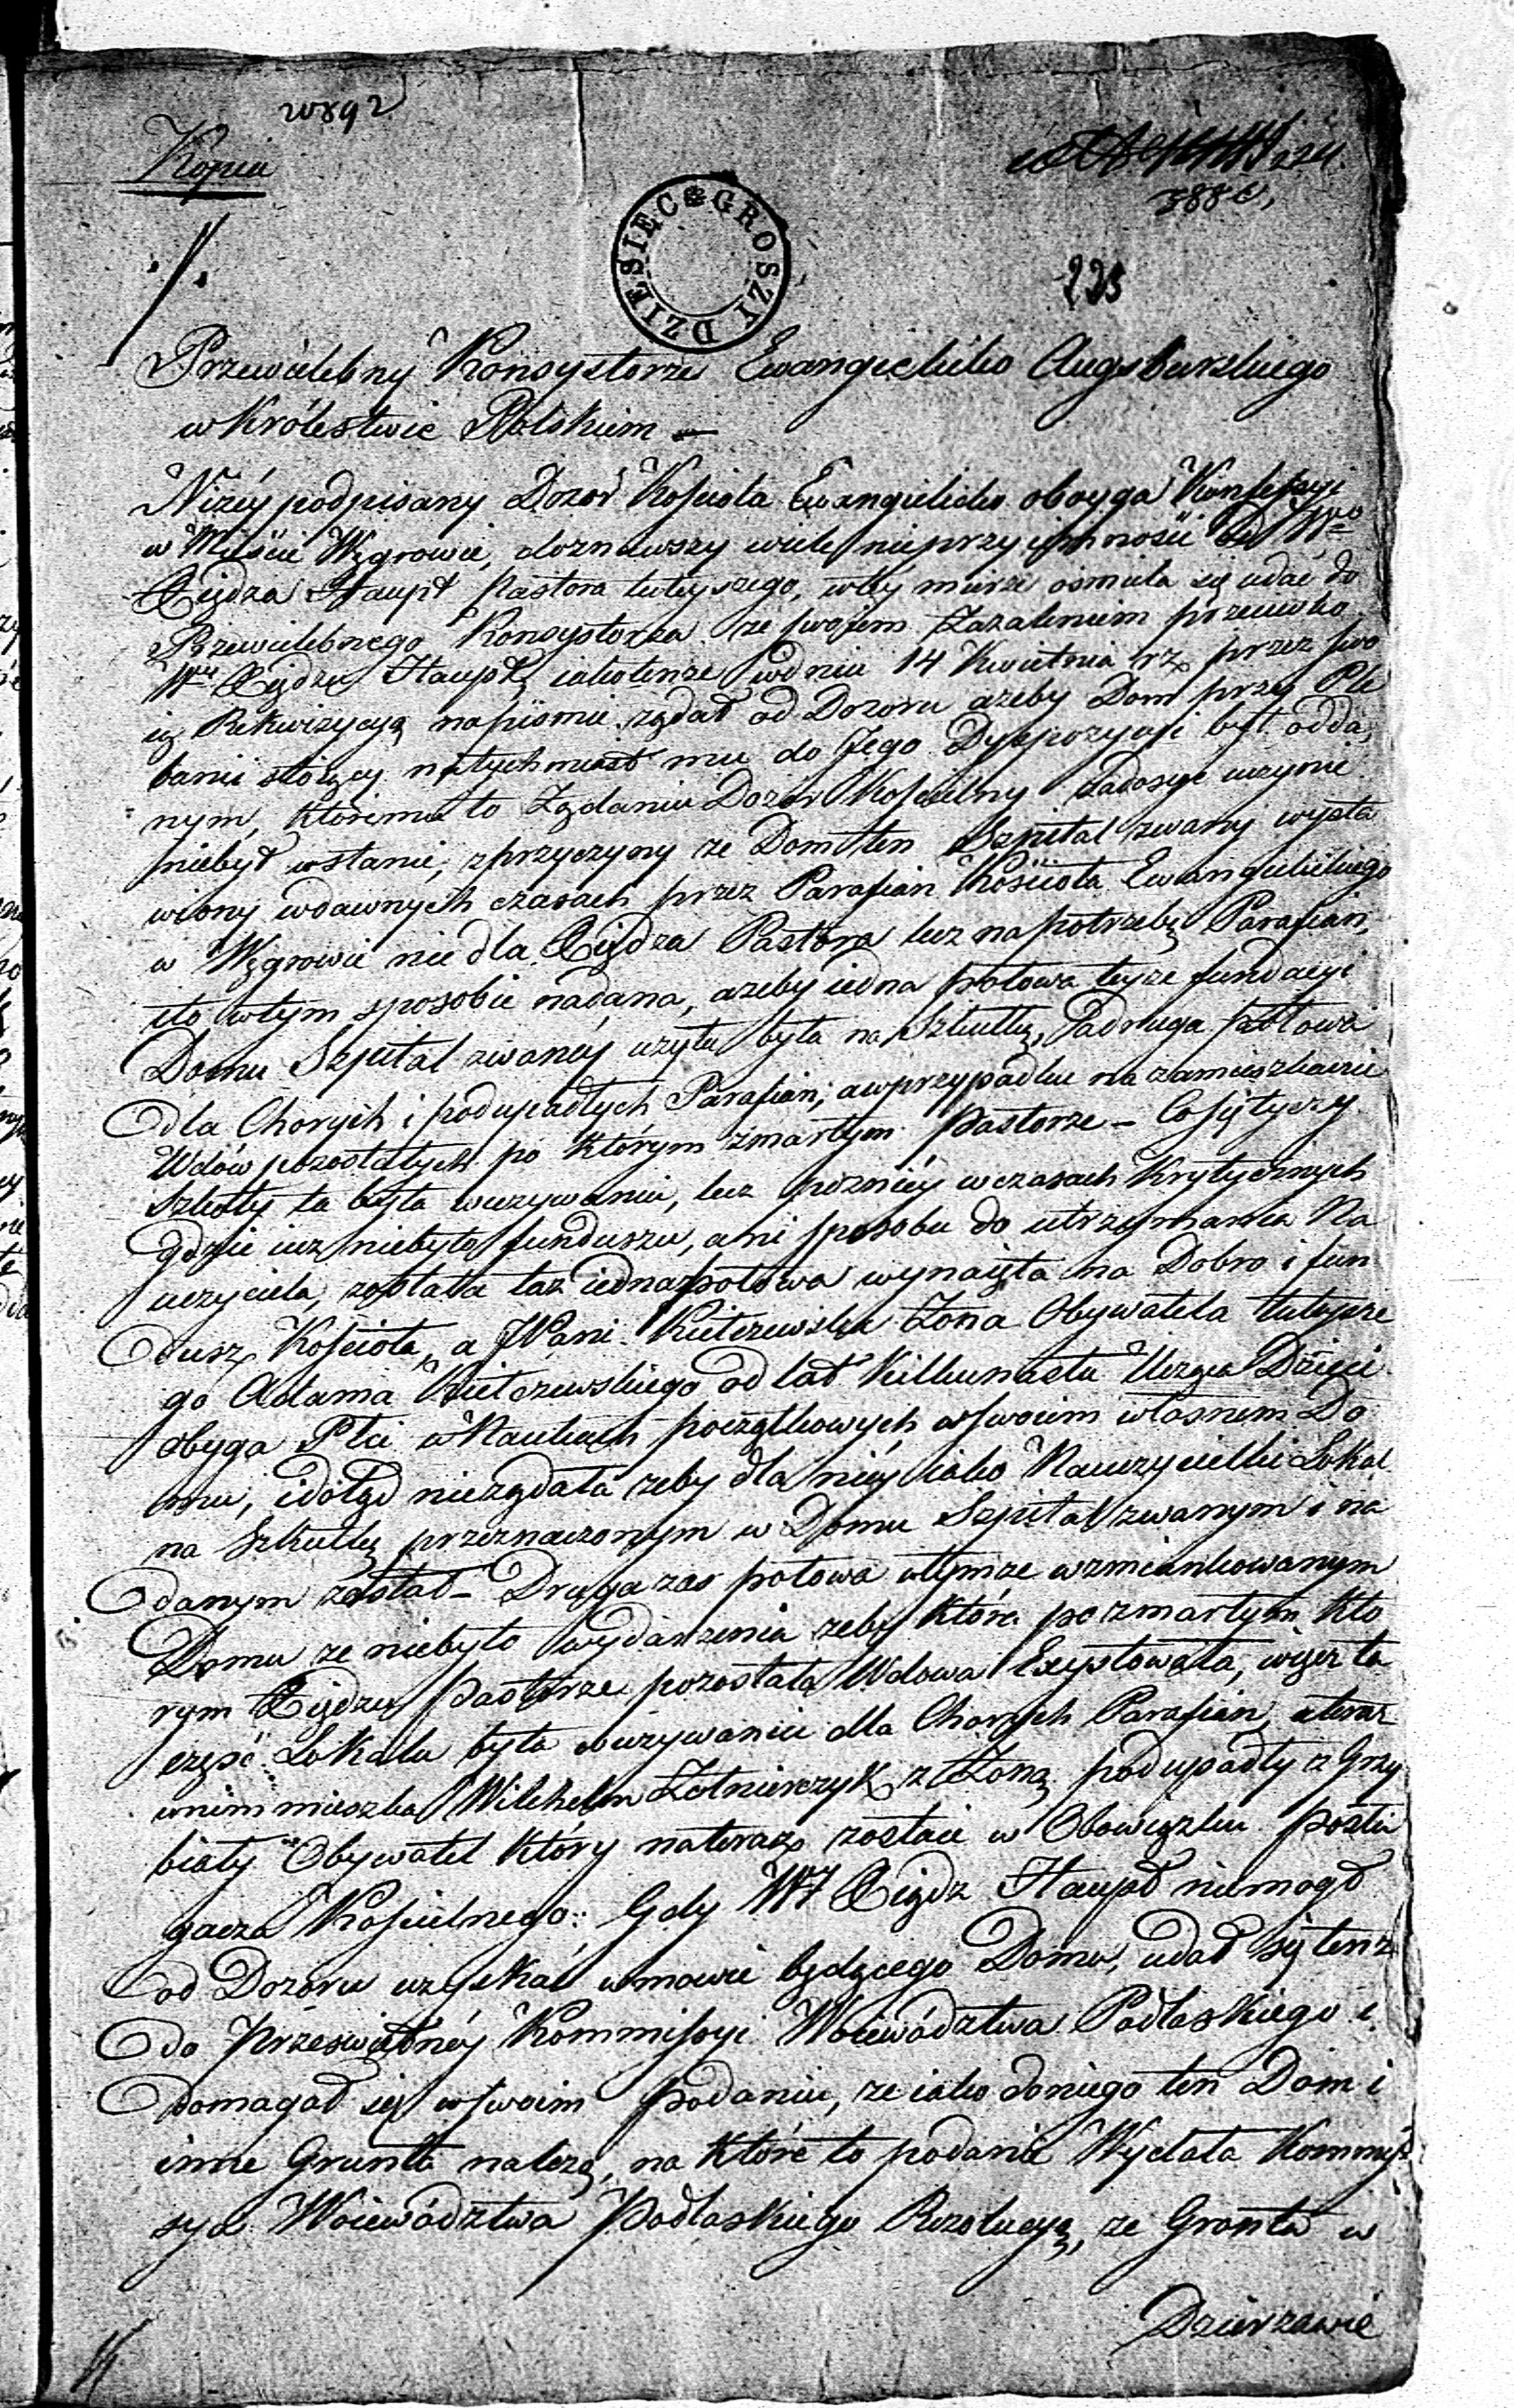 w892
Kopia
224
388 e,
DZIESIĘĆ GROSZY
225
Przewielebny Konsystorze Ewangelicko Augsburskiego
w Królestwie Polskiem
Niżéy podpisany Dozór Kościoła Ewangielicko oboyga Konfessyi
w Mieście Węgrowie, doznawszy wiele nieprzyiemności od Wgo
Xiędza Haupt Pastora tuteyszego, w téy mierze ośmiela się udać do
Przewielebnego Konsystorza ze swoiem Zażaleniem przeciwko
Wmu Xiędzu Haupt, iako tenże w dniu 14 Kwietnia rż przez swo
ię Rekwizycyą na piśmie żądał od Dozoru ażeby Dom przy Ple
banii stoiący natychmiast mu do Jego Dyspozycyi był odda
nym, któremu to Żądaniu Dozór Kościelny zadosyć uczynić
niebył w stanie, z przyczyny że Dom ten Szpital zwany wysta
wiony w dawnych czasach przez Parafian Kościoła Ewangielickiego
w Węgrowie nie dla Xiędza Pastora lecz na potrzebę Parafian,
i to w tym sposobie nadana, ażeby iedna połowa teyże fundacyi
Domu Szpital zwanéy użytą była na Szkułkę, a druga połowa
dla Chorych i podupadłych Parafian; a w przypadku na zamieszkanie
Wdów pozostałych po którym zmarłym Pastorze – Co się tyczy
Szkoły ta była w używaniu, lecz późniéy w czasach Krytycznych
gdzie iuż niebyło funduszu, ani sposobu do utrzymania Na
uczyciela, została taż iedna połowa wynaięta na Dobro i fun
dusz Kościoła, a JPani Kietczewska Żona Obywatela tuteysze
go Adama Kietczewskiego od lat Kilkunastu Uczęca Dzieci
obyga Płci w Naukach początkowych w swoiem własnem Do
mu, i dotąd nieżądała żeby dla niéy iako Nauczycielki Lokal
na Szkułkę przeznaczonym w Domu Szpital zwanym i na
danym został – Druga zaś połowa w tymże wzmiankowanym
Domu że niebyło wydarzenia żeby która po zmarłym któ
rym Xiędzu Pastorze pozostała Wdowa Exystowała, więc ta
część Lokalu była w używaniu dla Chorych Parafian, a teraz
w nim mieszka Wilhelm Żołnierczyk z Żoną podupadły a Grzy
biały Obywatel który na teraz zostaie w Obowiązku posłu
gacza Kościelnego: Gdy Wny Xiądz Haupt niemogł
od Dozoru uzyskać w mowie będącego Domu, udał się tenż
do Prześwietnéy Kommissyi Woiewództwa Podlaskiego i
domagał się w swoim podaniu, że iako doniego ten Dom i
inne Grunta należą, na które to podanie Wydała Kommis
sya Woiewództwa Podlaskiego Rezolucyą, że Gronta w
Dzierżawie